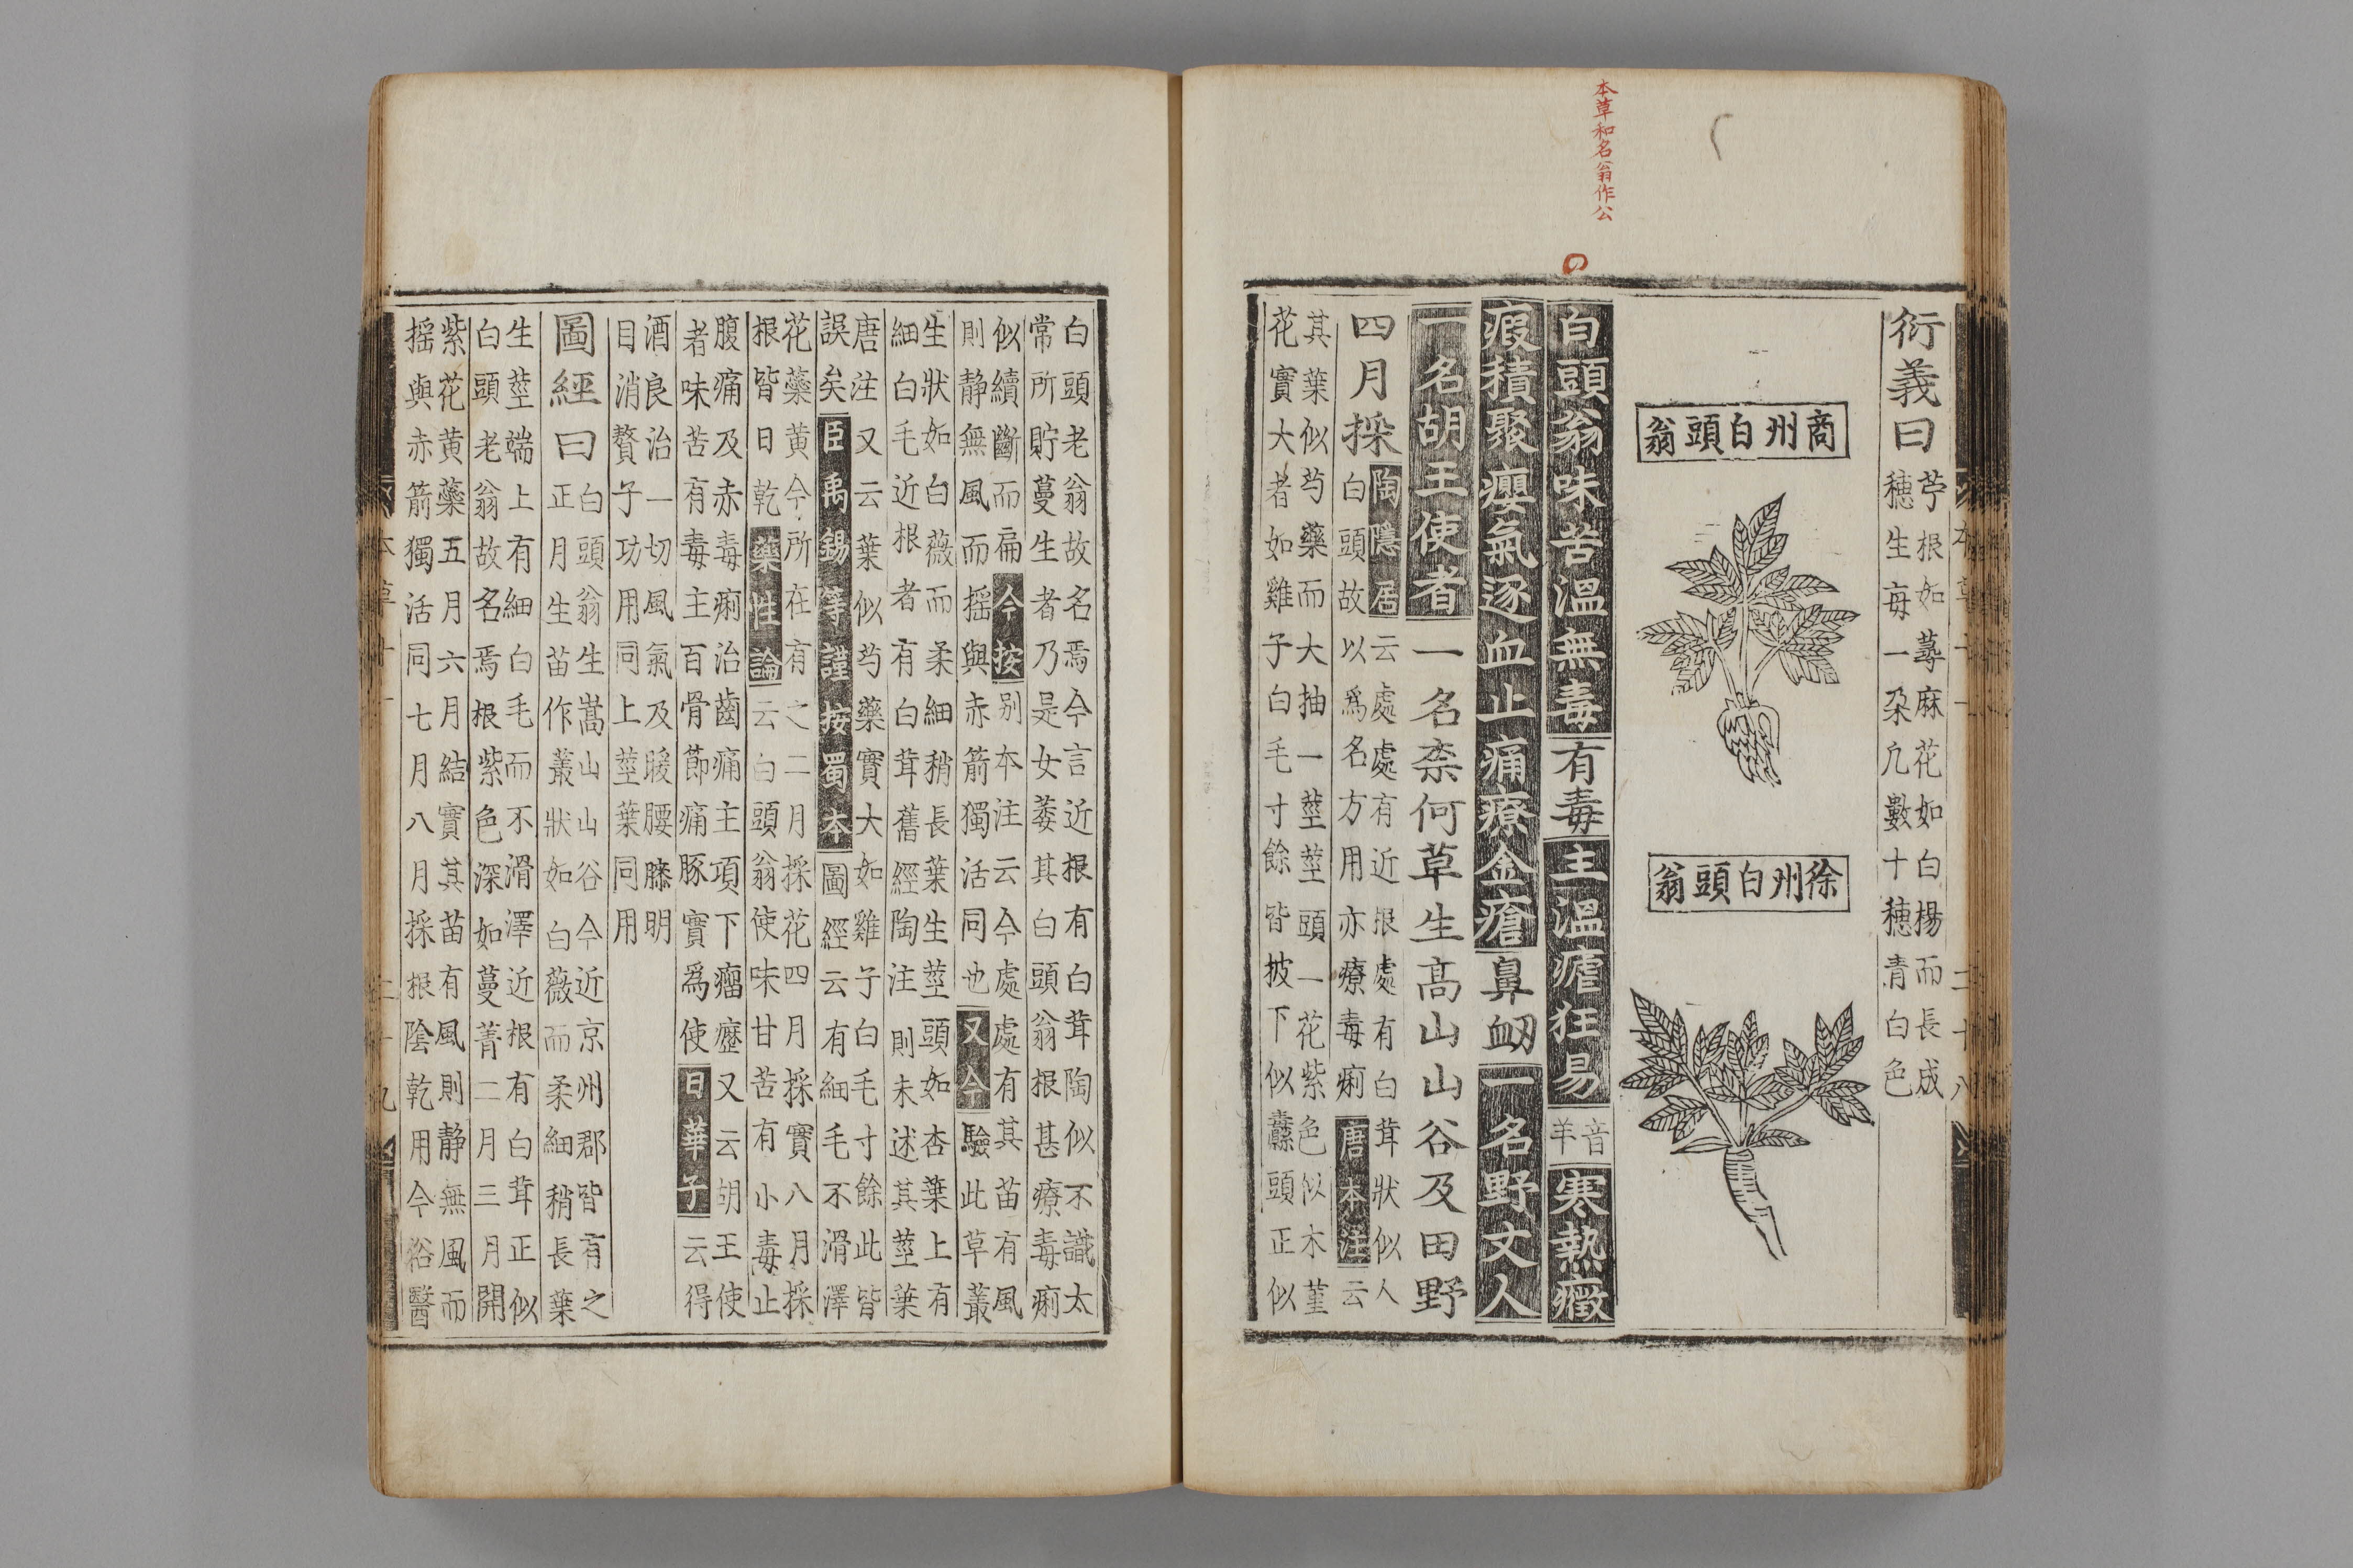 本草和名翁作公
衍義曰
苧根如蕁麻花如白楊而長成
穗生毎一朶凢數十穗青白色
商州白頭翁
徐州白頭翁
白頭翁味苦溫無毒有毒主溫瘧狂昜音羊寒熱癥
瘕積聚癭氣逐血止痛療金瘡鼻衂一名野丈人
一名胡王使者一名柰何草生高山山谷及田野
四月採
陶隱居云處處有近根處有白茸狀似人
白頭故以爲名方用亦療毒痢唐本注云
其葉似芍藥而大抽一莖莖頭一花紫色似木堇
花實大者如雞子白毛寸餘皆披下似纛頭正似
白頭老翁故名焉今言近根有白茸陶似不識太
常所貯蔓生者乃是女萎其白頭翁根甚療毒痢
似續斷而扁今按别本注云今處處有其苗有風
則静無風而揺與赤箭獨活同也又今驗此草叢
生狀如白薇而柔細稍長葉生莖頭如杏葉上有
細白毛近根者有白茸舊經陶注則未述其莖葉
唐注又云葉似芍藥實大如雞子白毛寸餘此皆
誤矣臣禹錫等謹按蜀本圖經云有細毛不滑澤
花蘂黄今所在有之二月採花四月採實八月採
根皆日乾藥性論云白頭翁使味甘苦有小毒止
腹痛及赤毒痢治齒痛主項下瘤癧又云胡王使
者味苦有毒主百骨節痛豚實爲使日華子云得
酒良治一切風氣及暖腰膝明
目消贅子功用同上莖葉同用
圖經曰
白頭翁生嵩山山谷今近京州郡皆有之
正月生苗作叢狀如白薇而柔細稍長葉
生莖端上有細白毛而不滑澤近根有白茸正似
白頭老翁故名焉根紫色深如蔓菁二月三月開
紫花黄蘂五月六月結實其苗有風則静無風而
揺與赤箭獨活同七月八月採根陰乾用今俗醫
本草十一
二十八
本草十一
二十九